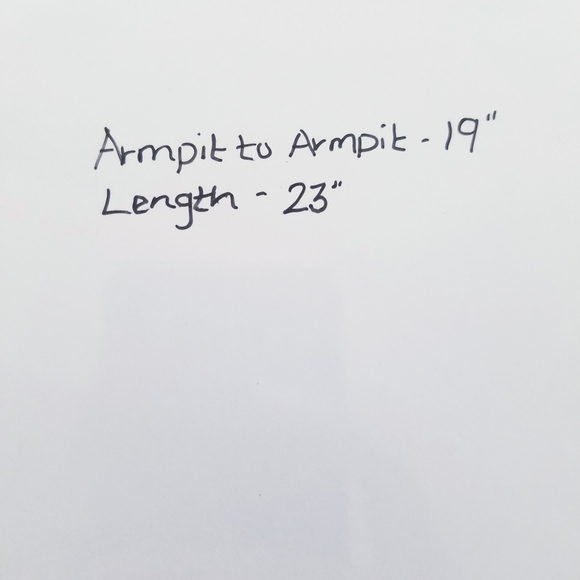 Armpit to Armpit - 19"
Length - 23"